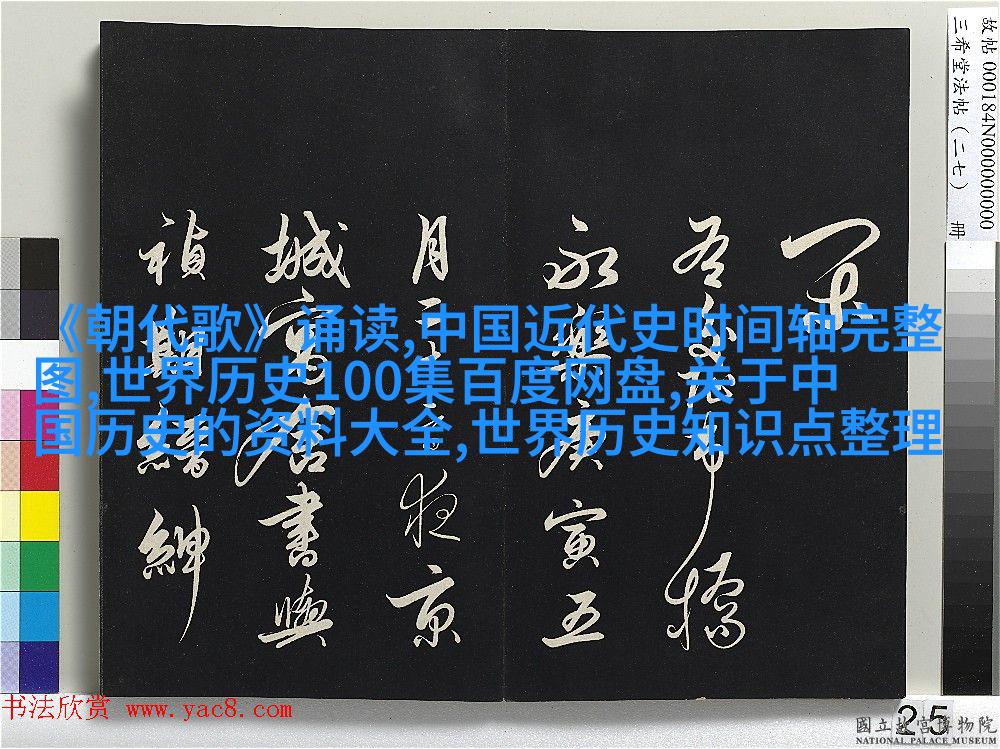 故帖 000184N000000000
三希堂法帖（二七） 冊
《朝代歌》诵读,中国近代史时间轴完整
图,世界历史100集百度网盘,关于中
国历史的资料大全,世界历史知识点整理
永樂庚寅五
月
夜京
城寓居書與
禎
縉紳
书法欣赏 www.yac8.com
25
國立故宮博物院
NATIONAL PALACE MUSEUM